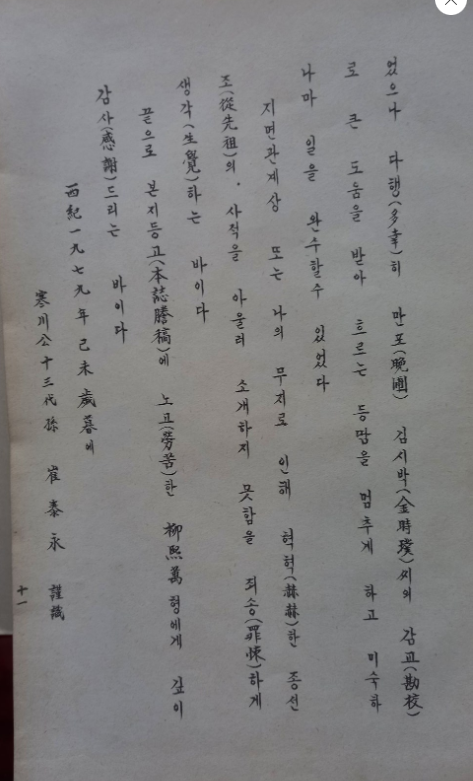 었으나 다행(多幸)히 만포(晩圃) 김시박(金時璞)씨의 감교(勘校)
로 큰 도움을 받아 흐르는 등땀을 멈추게 하고 미숙하
나마 일을 완수할수 있었다
지면관계상 또는 나의 무지로 인해 혁혁(赫赫)한 종선
조(從先祖)의. 사적을 아울러 소개하지 못함을 죄송(罪悚)하게
생각(生覺)하는 바이다
끝으로 본지등고(本誌謄稿)에 노고(勞苦)한 柳熙萬형에게 깊이
감사(感謝)드리는 바이다
西紀一九七九年己未歲暮에
寒川公十三代孫 崔泰永 謹識
十一